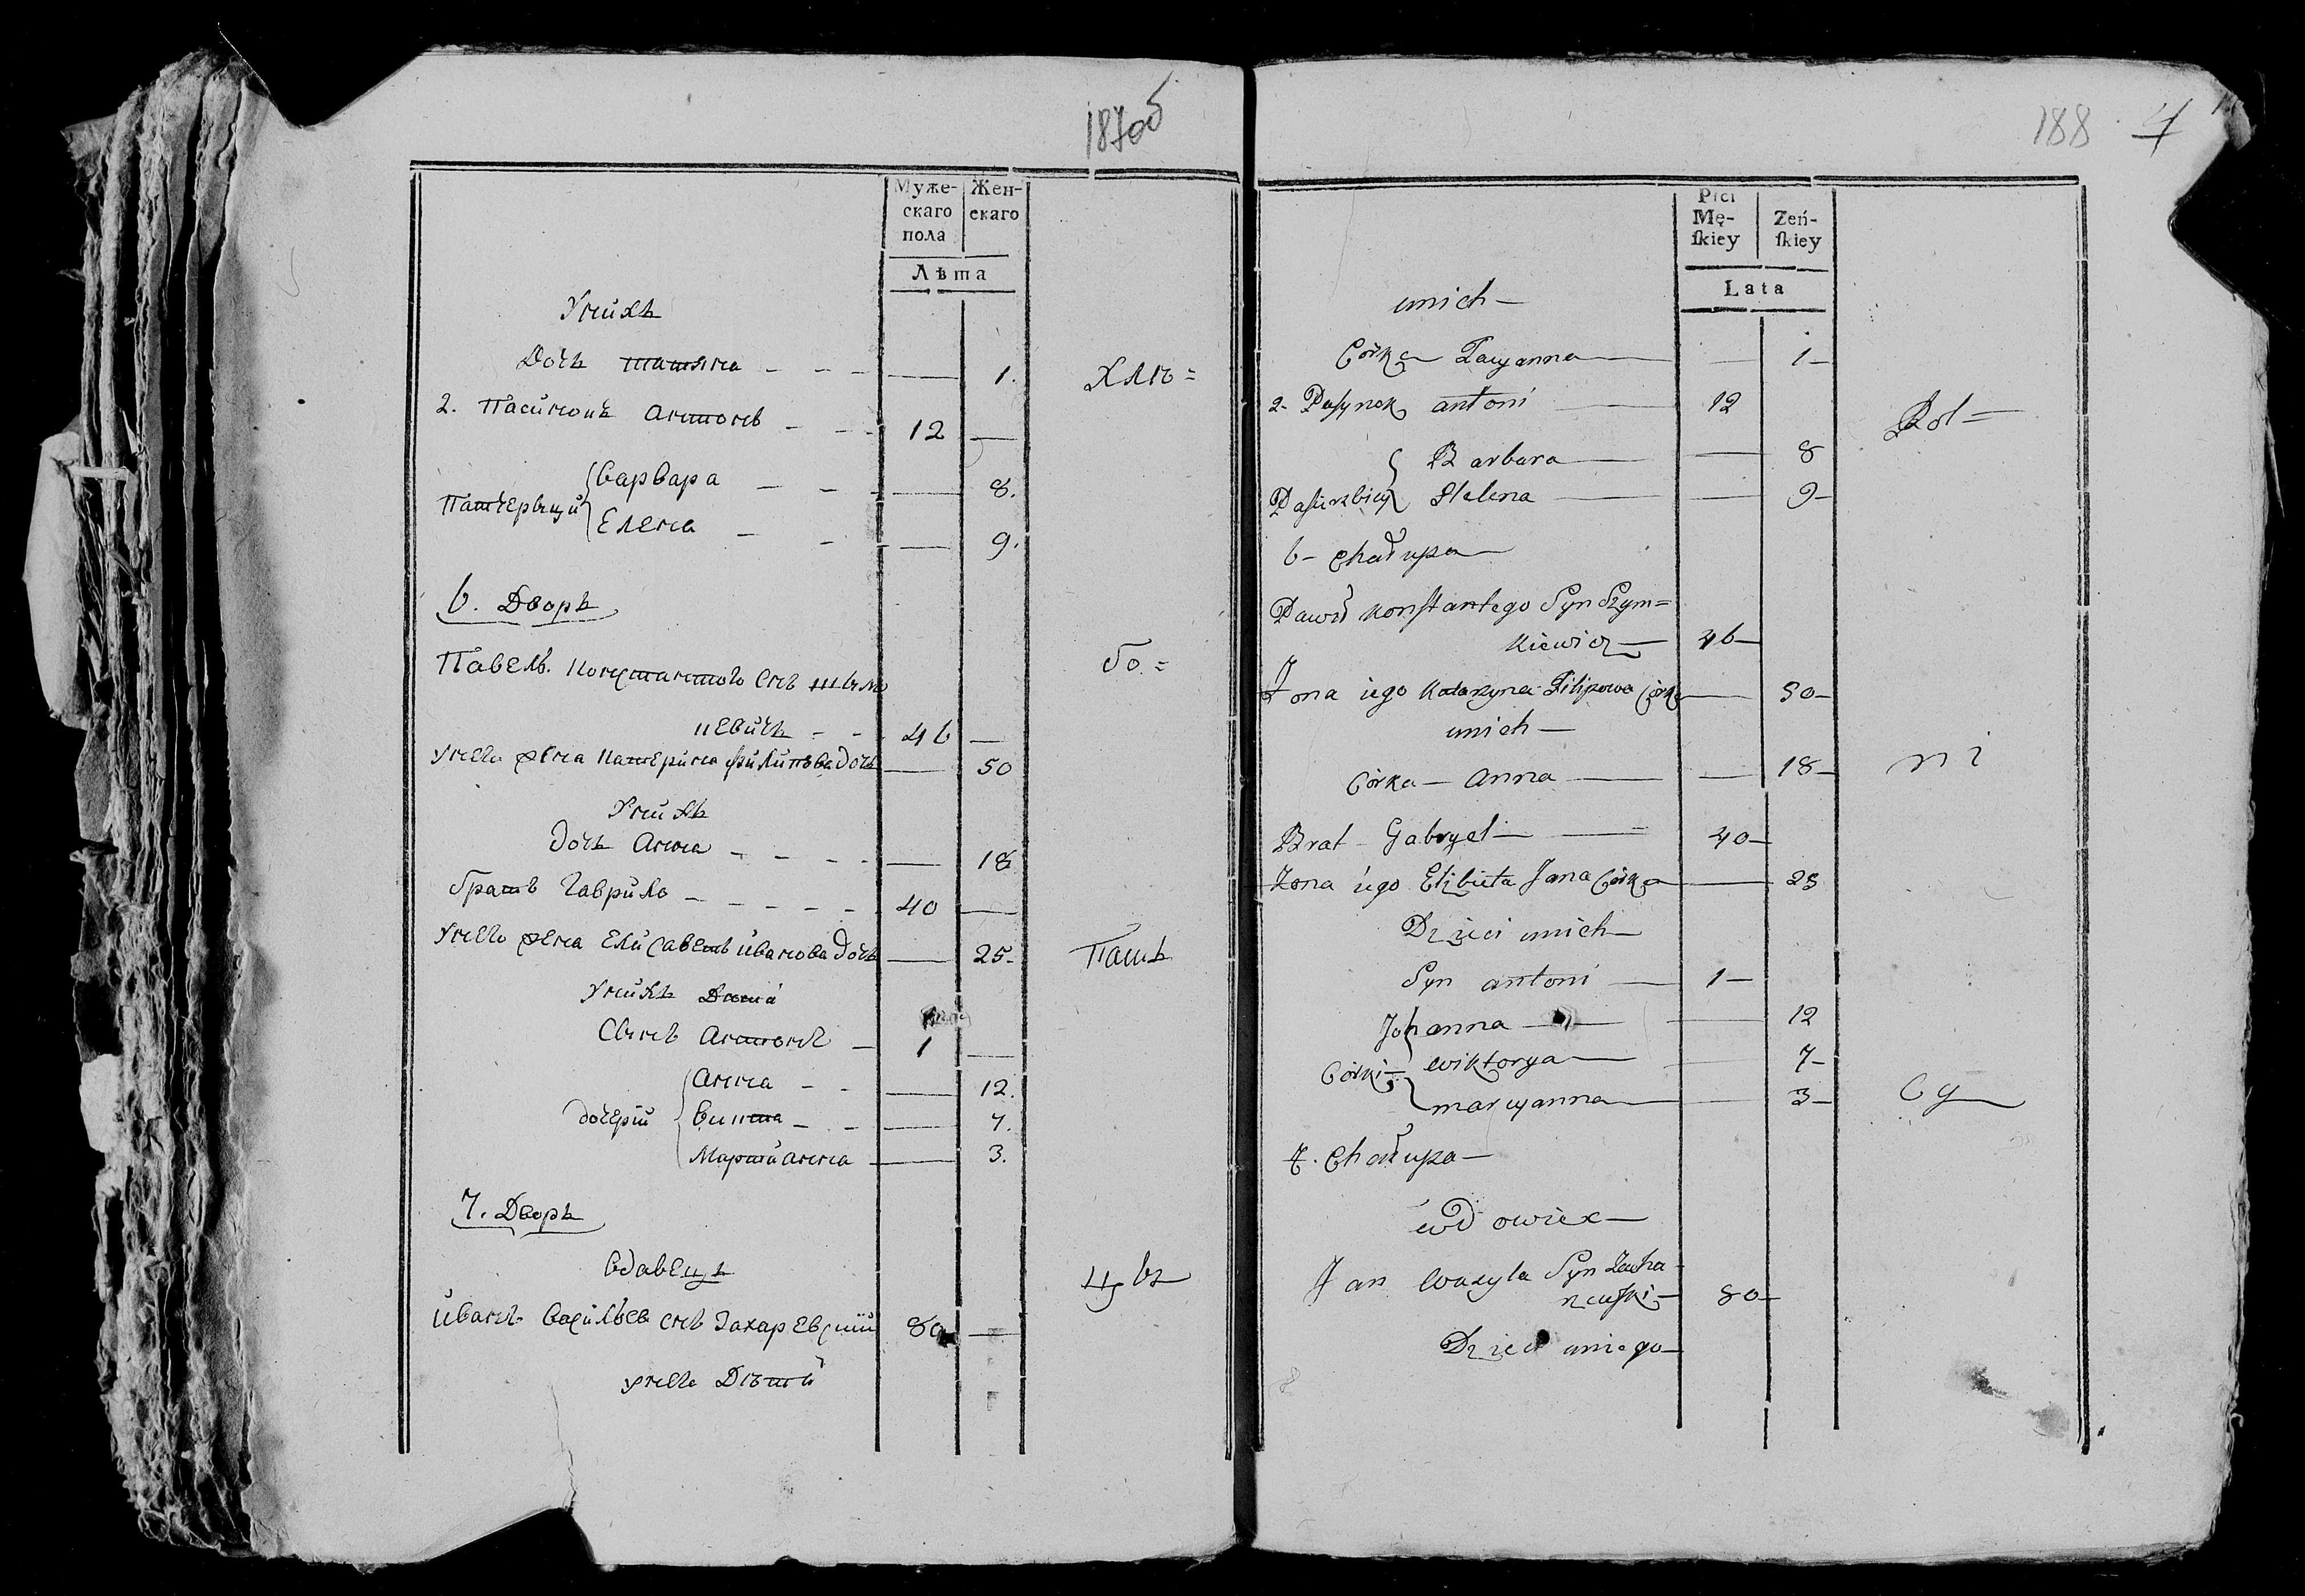 187об
Муже-
скаго
пола
Жен-
скаго
Лѣта
У нихъ
Дочь Татяна - - - — 1.
Хлѣ=
2. Пасинокъ Антонъ - - - 12 —
Патчерыцы
Варвара - - - — 8.
Елена - - - — 9.
6. Дворъ
Павелъ Константого снъ Шым
кевичъ - - 46 —
бо=
У него жена Катерина Филипова дочь — 50
У нихъ
дочь Анна - - - - — 18
братъ Гаврило - - - - - 40 —
У него жена Елисаветъ Иванова дочь — 25-
Пашъ
У нихъ Дѣти
Сынъ Антонъ - 1 —
дочери
Анна - - — 12.
Викта - - — 7.
Мартианна — 3.
7. Дворъ
Вдавецъ
цы
Иванъ Васильев снъ Захаревский 80 —
у него Дѣти
188 4
Płci
Mę-
ſkiey
Zeń-
ſkiey
Lata
unich —
Córka Taцyanna — — 1 —
2- Pasynek Antoni — 12
Rol =
Pasierbicy
Barbara — — 8
Helena — — 9 —
6 - Chałupa —
Paweł Konstantego Syn Szym=
kiewicz — 46 —
Zona iego Katarzyna Filipowa Córka — 50 —
unich —
Córka — Anna — — 18 —
ni
Brat - Gabryel — — 40 —
Zona iego Elżbieta Jana Córka — 25
Dzieci unich —
Syn Antoni — 1 —
Córki —
Johanna — — 12
Wiktorya — — 7 —
Maryanna — — 3 —
cy
7. Chałupa —
Wdowiec —
Jan Wasyla Syn Zacha-
rzewski — 80 —
Dzieci uniego —